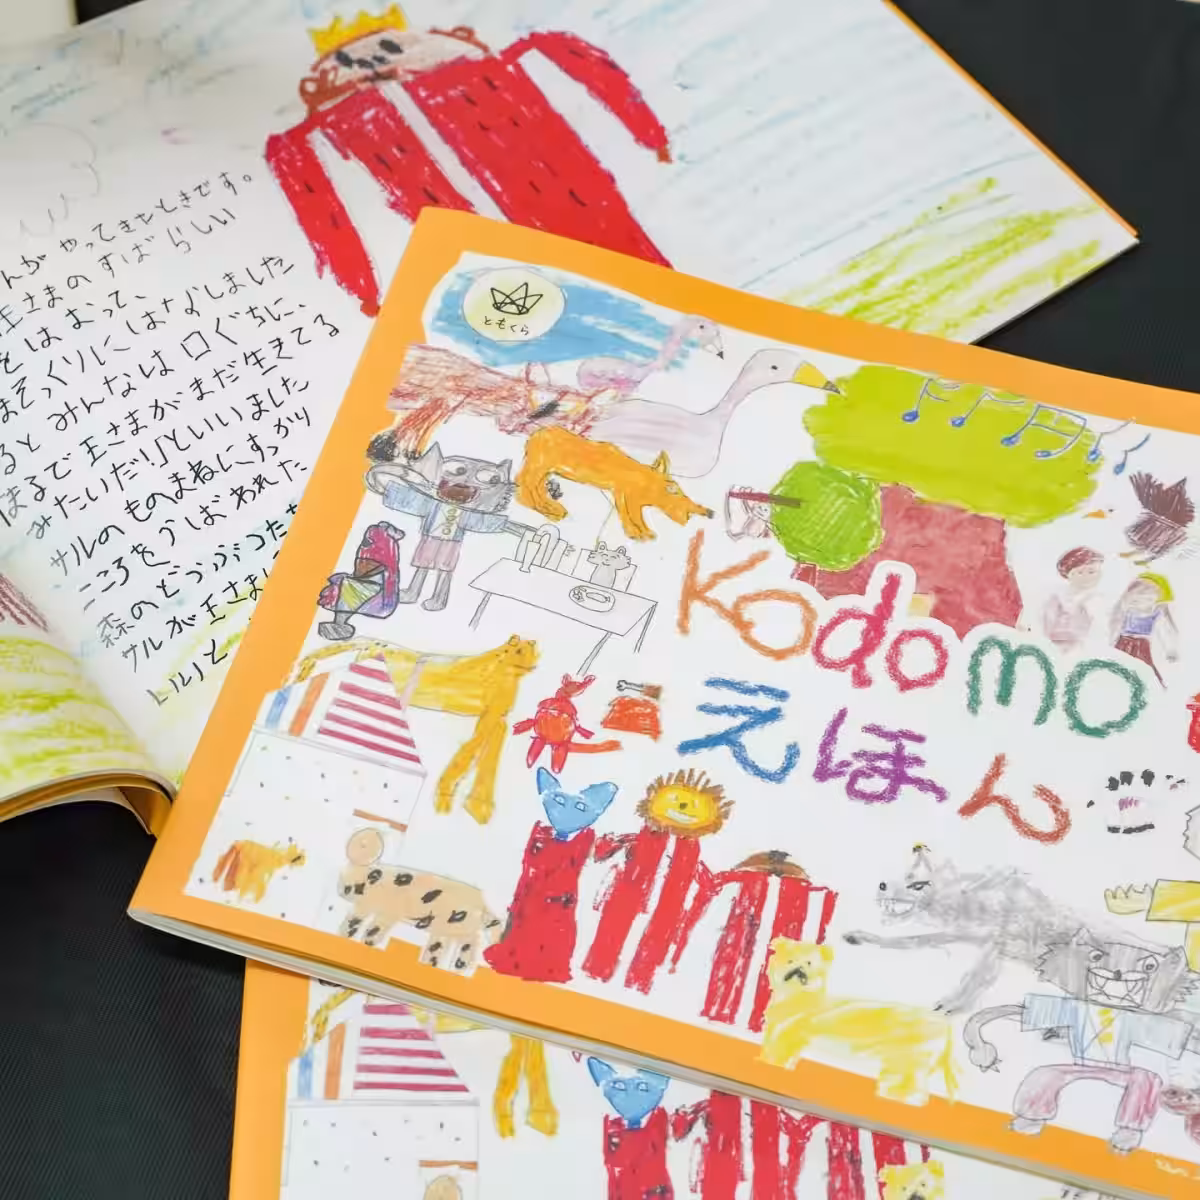 んが やってきたときです。
王さまの すばらしい
をはおって、
まそっくりに はなしました
ると みんなは 口ぐちに、
まるで王さまがまだ生きてる
みたいだ!」といいました
サルの ものまねに、すっかり
こころを うばわれた
森の どうぶつた
サルが 王さま
いいと
ともくら
Kodomo
えほん